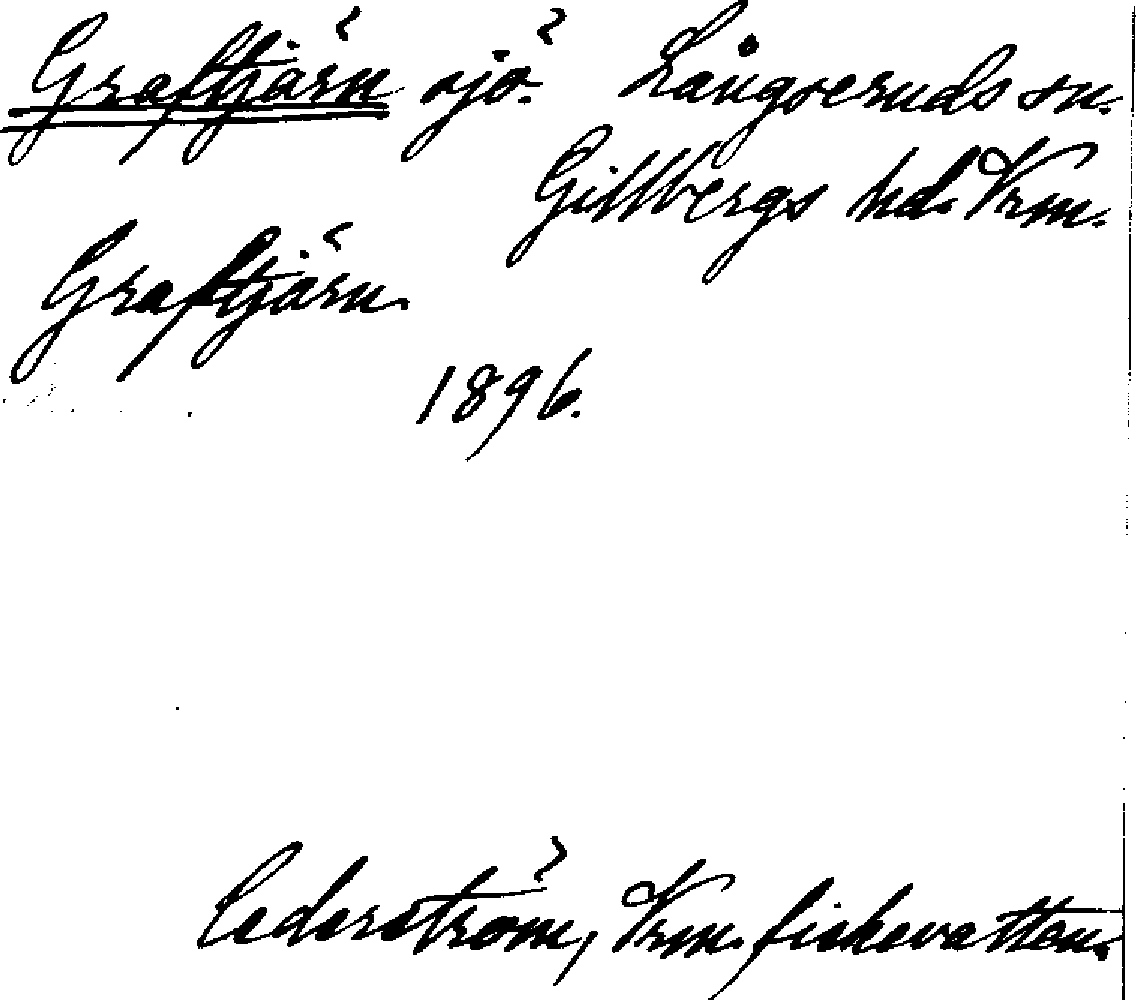 Graftjärn sjö. Långseruds sn.
Gillbergs hd. Vrm.
Graftjärn.
1896.
Cederström, Vrm. fiskevatten.